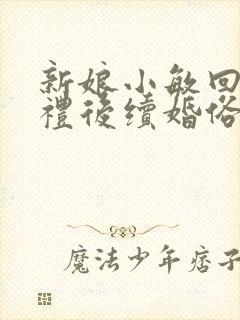 新娘小敏回
禮後續婚俗
魔法少年痞子